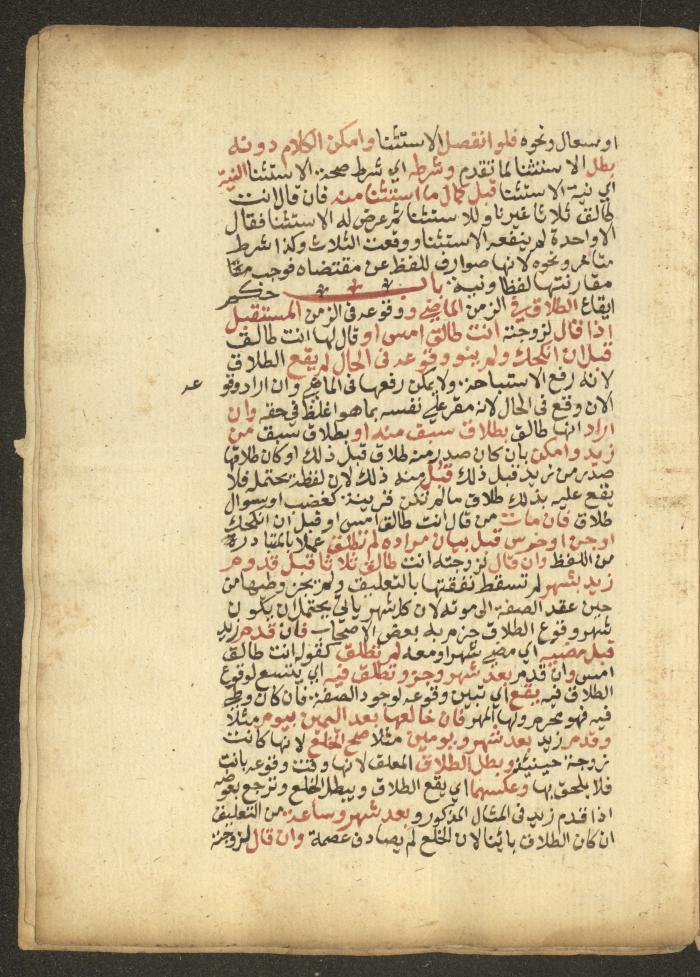 او سعال ونحوه فلو انفصل الاستثنا وامكن الكلام دونه
بطل الاستثنا لما تقدم وشرطه اي شرط صحة الاستثنا النية
اي نية الاستثنا قبل كمال ما استثنا منه فان قال انت
طالق ثلاثا غير ناو للاستثنا ثم عرض له الاستثنا فقال
الا واحدة لم ينفعه الاستثنا ووقعت الثلاث وكذا شرط
متاخر ونحوه لانها صوارف للفظ عن مقتضاه فوجب
مقارنتها لفظا ونية باب حكم
ايقاع الطلاق في الزمن الماضي ووقوعه في الزمن المستقبل
اذا قال لزوجته انت طالق امس او قال لها انت طالق
قبل ان انكحك ولم ينو وقوعه في الحال لم يقع الطلاق
لانه رفع الاستباحة ولا يمكن رفعها في الماضي وان اراد وقو عه
الان وقع في الحال لانه مقر على نفسه بما هو اغلظ في حقه وان
اراد انها طالق بطلاق سبق منه او بطلاق سبق من
زيد وامكن بان كان صدر منه طلاق قبل ذلك او كان طلاقها
صدر من زيد قبل ذلك قبل منه ذلك لان لفظه يحتمله فلا
يقع عليه بذلك طلاق ما لم تكن قرينة كغضب او سوال
طلاق فان مات من قال انت طالق امس او قبل ان انكحك
او جن او خرس قبل بيان مراده لم تطلق عملا بالمتبادر
من اللفظ وان قال لزوجته انت طالق ثلاثا قبل قدوم
زيد بشهر لم تسقط نفقتها بالتعليق ولم يجز وطيها من
حين عقد الصفة الى موته لان كل شهر ياتي يحتمل ان يكون
شهر وقوع الطلاق جزم به بعض الاصحاب فان قدم زيد
قبل مضيه اي مضي شهر او معه لم تطلق كقوله انت طالق
امس وان قدم بعد شهر وجزء تطلق فيه اي يتسع لوقوع
الطلاق فيه يقع اي تبين وقوعه لوجود الصفة فان كان وطي
فيه فهو محرم ولها المهر فان خالعها بعد اليمين بيوم مثلا
وقدم زيد بعد شهر ويومين مثلا صح الخلع لانها كانت
زوجة حينئذ وبطل الطلاق المعلق لانها وقت وقوعه بائن
فلا يلحقها وعكسهما اي يقع الطلاق ويبطل الخلع وترجع بعوضه
اذا قدم زيد في المثال المذكور بعد شهر وساعة من التعليق
ان كان الطلاق بائنا لان الخلع لم يصادف عصمة وان قال لزوجته